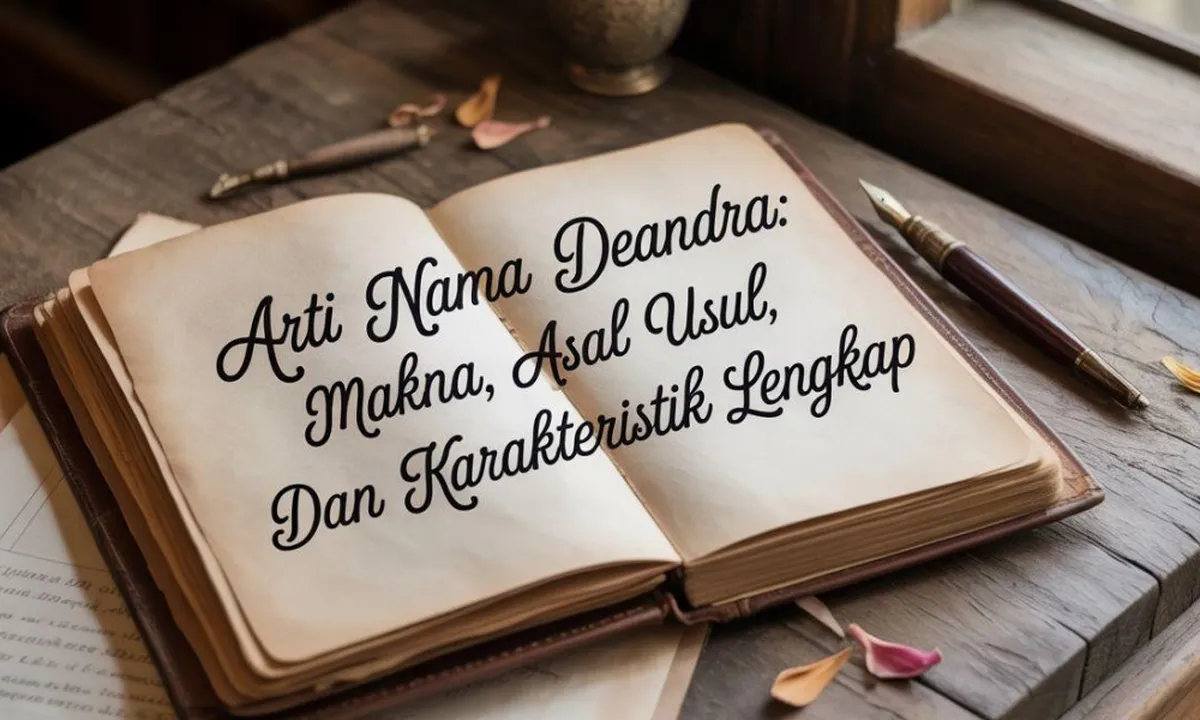 Arti Nama Deandra:
Makna, Asal Usul,
Dan Karakteristik Lengkap